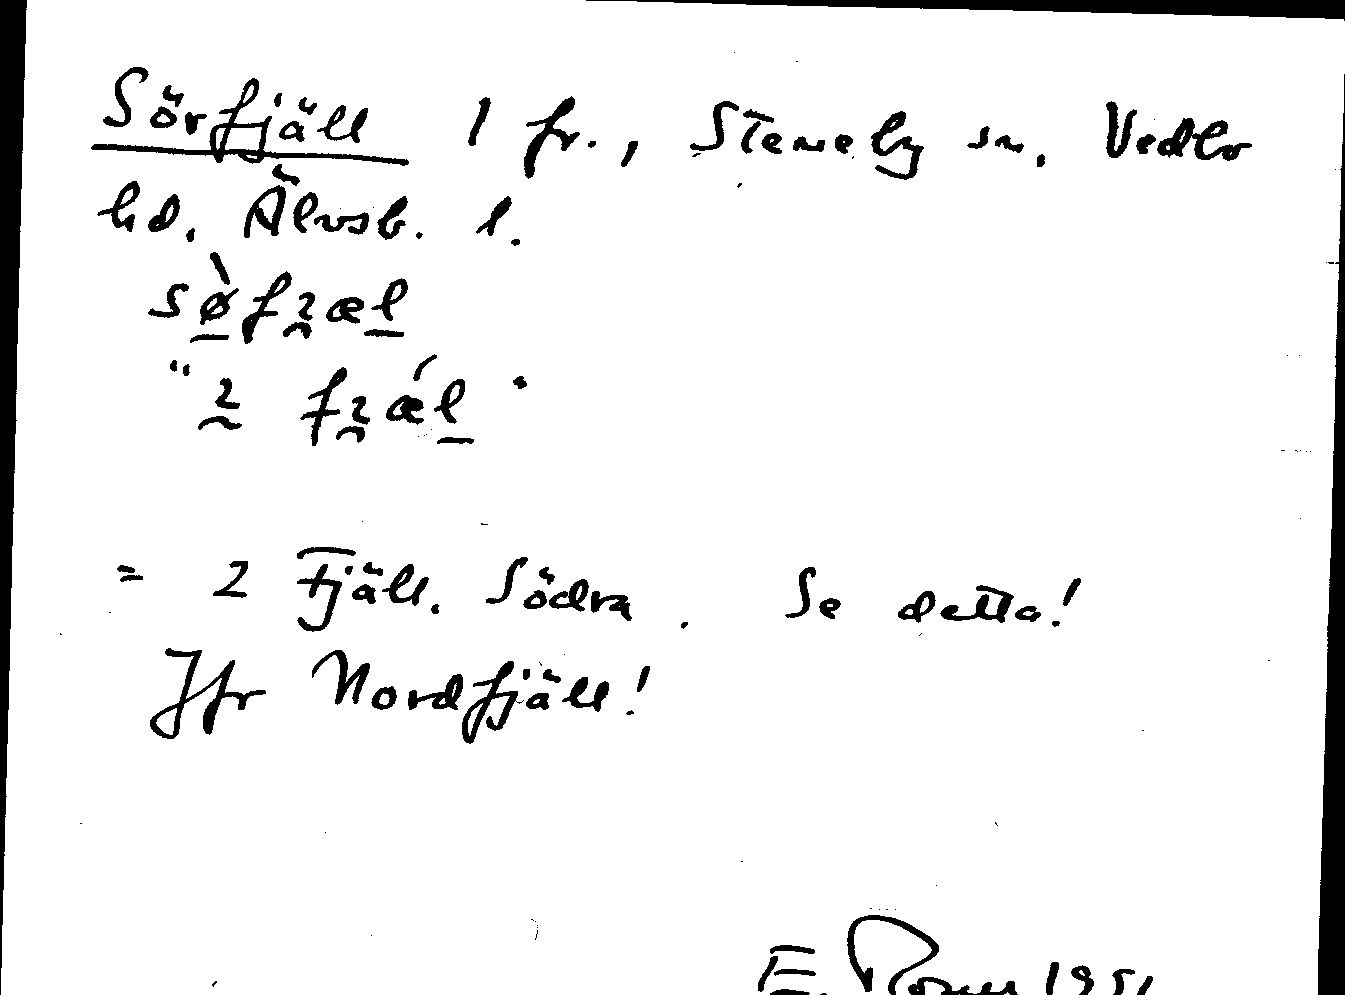 Sörfjäll 1 fr., Steneby sn. Vedbo
hd. Älvsb. l.
= 2 Fjäll. Södra. Se detta!
Jfr Nordfjäll!
E. 1951